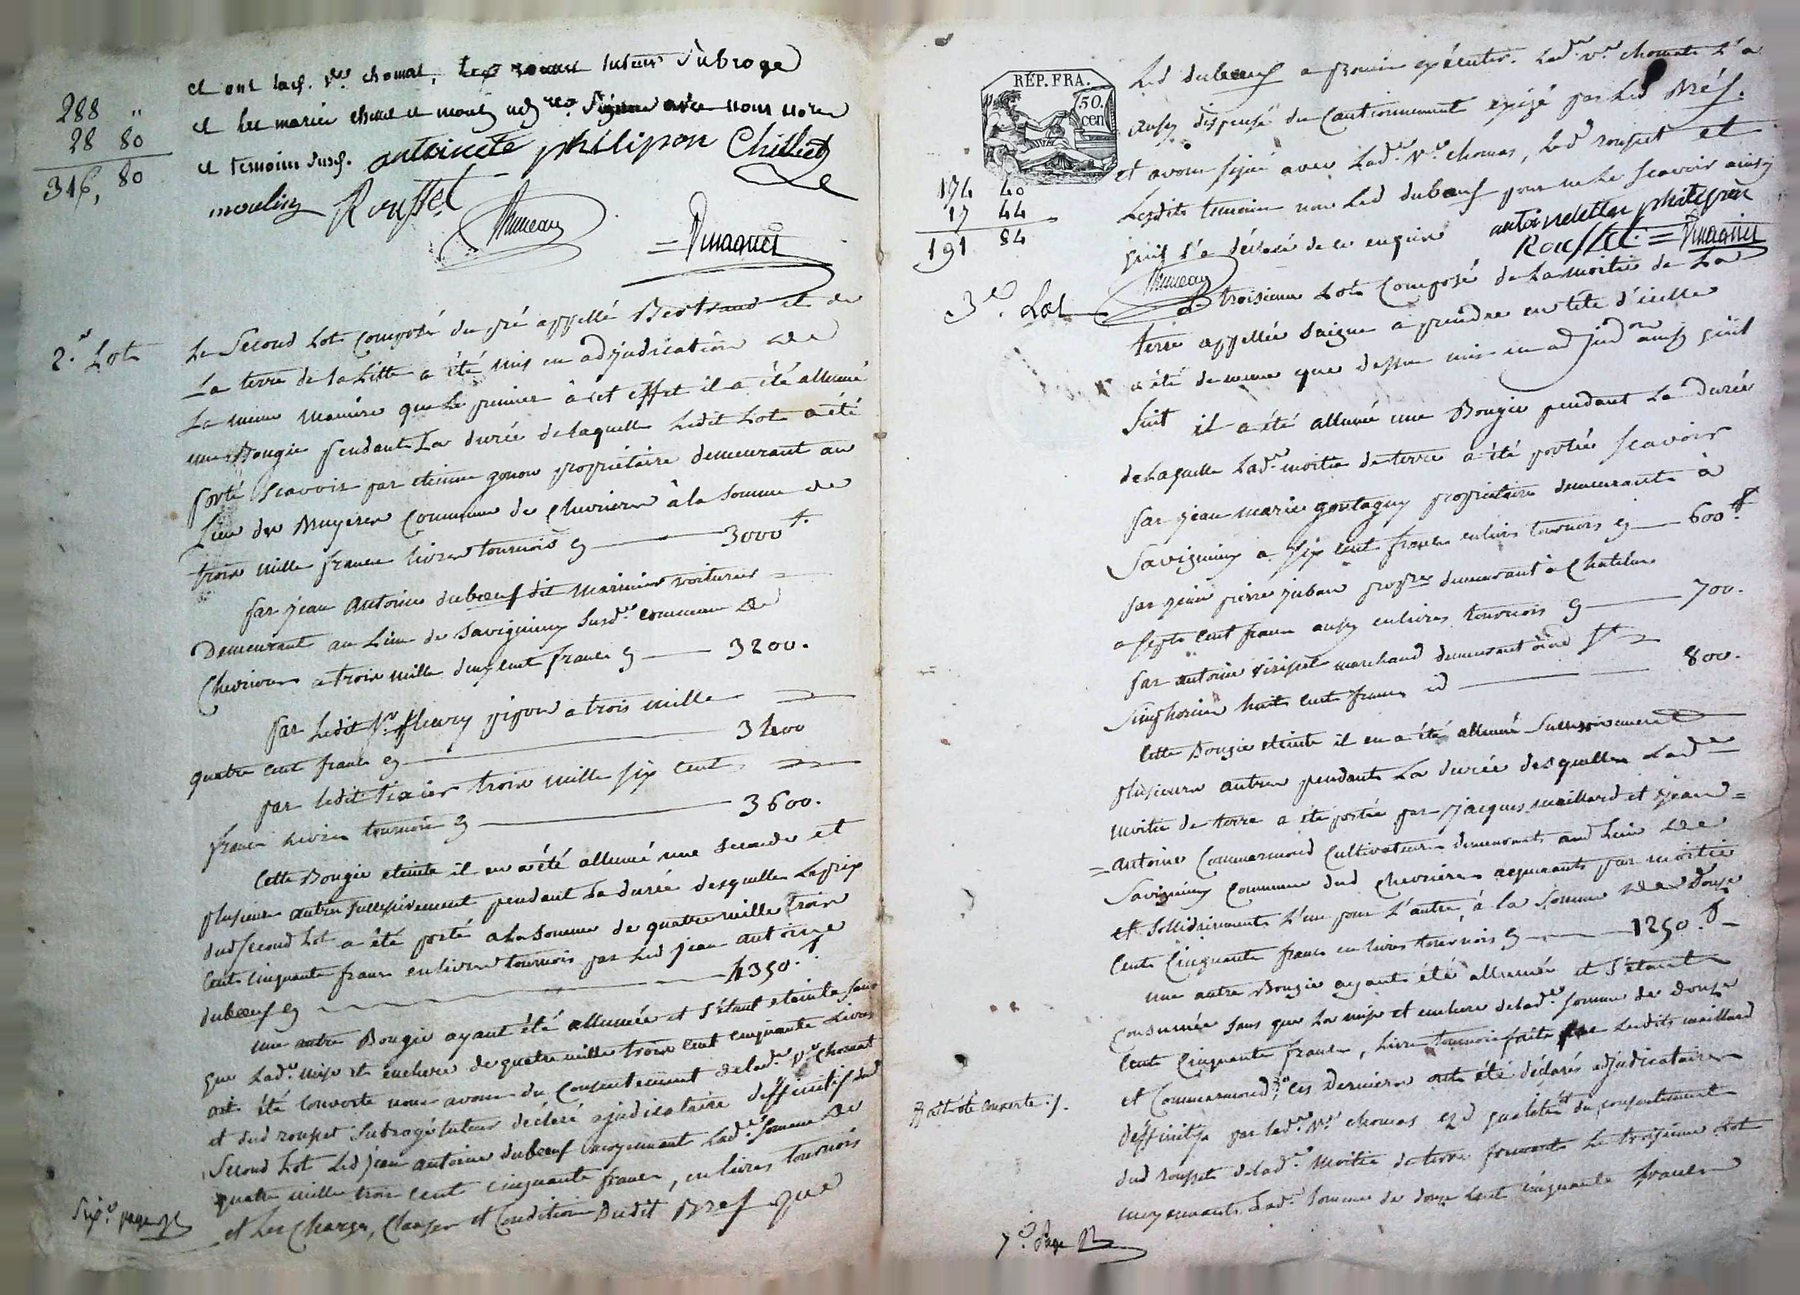 288 "
28 80
316, 80
et ont lad. Ve. chomat, led rouset tuteur Subrogé
et les maries chillet et moulin adj.res Signé avec nous notre
et temoins susd. antoinete philipon Chillet
moulin Rousset
Bruneau = Dmagnet
2.d Lot
Le Second Lot composé du pré appellé Bertrand et de
La terre de la Litte a été mis en adjudication de
La meme maniere que le premier à cet effet il a été allumé
une Bougie pendant La durée de laquelle Ledit Lot a été
porté Scavoir par etienne gonon propriétaire demeurant au
Lieu des Bruyeres Commune de Chevrieres à la Somme de
trois mille francs livres tournois cy 3000 f.
par jean Antoine duboeuf dit marinier voiturier
Demeurant au Lieu de Savigneux susd.e Commune de
Chevrieres a trois mille deux cent francs cy 3200.
par Ledit Sr. fleury pipon a trois mille
quatre cent francs cy 3400
par ledit tixier trois mille six cent
francs livres tournois cy 3600.
Cette Bougie eteinte il en a été allumé une Seconde et
plusieurs autres successivement pendant La durée desquelles Le prix
dud second Lot a été porté a La Somme de quatre mille trois
Cent cinquante francs en livres tournois par Led jean antoine
duboeuf cy 4350. f
une autre Bougie ayant été allumée et S'étant eteinte sans
que Lad.e mise et enchere de quatre mille trois cent cinquante Livres
ait été couverte nous avons du Consentement de lad.e Ve. chomat
et dud rousset Subrogé tuteur déclaré ajudicataire deffinitif dud
Second Lot Led jean antoine duboeuf moyennant Lad.e Somme de
quatre mille trois cent cinquante francs, en livres tournois
et Les Charges, Clauses et Condition dudit Bref que
Six.e page
RÉP. FRA.
50.
cen
174 40
17 44
191 84
Led duboeuf a promis exécuter. Lad.e Ve. chomat L'a
aussy dispensé du Cautionnement exigé par Led Bref.
et avons signé avec Lad.e Ve. chomat, Led rousset et
Lesdits temoins non Led duboeuf pour ne Le Scavoir ainsy
quil l'a déclaré de ce enquis antoinette philipon
Rousset = Dmagnet
Bruneau
3.e Lot
Le troisieme Lot Composé de La moitié de La
terre appellée Saigne a prendre en tete d'icelle
a été de meme que dessus mis en adjud.on ainsy quil
Suit il a été allumé une Bougie pendant La durée
de Laquelle Lad.e moitié de terre a été portée Scavoir
par jean marie gontagny propriétaire demeurant à
Savigneux a six cent francs en livres tournois cy 600 f.
par jean pierre jaban prop.re demeurant a Chatelus
a sept cent francs aussy en livres tournois cy 700.
par antoine viripet marchand demeurant a St
Simphorien huit cent francs cy 800.
Cette Bougie eteinte il en a été allumé Successivement
plusieurs autres pendant La durée desquelles Lad.e
moitié de terre a été portée par jacques maillard et jean
= antoine Commarmond Cultivateurs demeurants aud Lieu de
Savigneux Commune dud Chevrieres acquerants par moitié
et Sollidairement L'un pour L'autre, à la Somme de Douze
Cent Cinquante francs en livres tournois cy 1250. f
une autre Bougie ayant été allumée et S'étant
Consumée Sans que La mise et enchere de lad.e Somme de Douze
Cent Cinquante francs, Livres tournois faite par Lesdits maillard
et Commarmond, ces Derniers ont été déclarés adjudicataires
a été de couverte
deffinitifs par lad.e Ve. chomat e.d qualité et du consentement
dud rousset de lad.e moitié de terre formant Le troisieme Lot
moyennant Lad.e Somme de douze Cent Cinquante francs
7.e Page